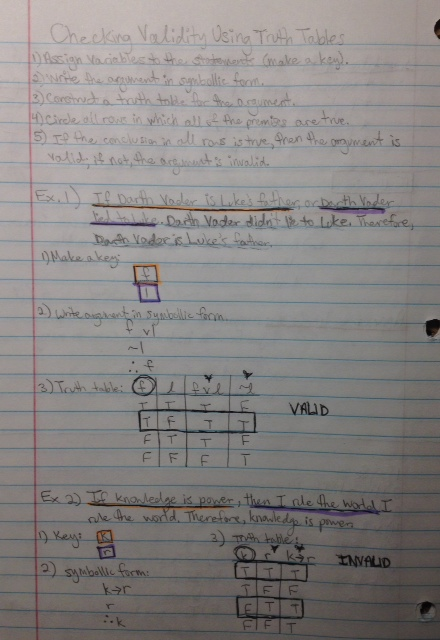 Checking Validity Using Truth Tables
1) Assign variables to the statements (make a key).
2) Write the argument in symbollic form.
3) Construct a truth table for the argument.
4) Circle all rows in which all of the premises are true.
5) If the conclusion in all rows is true, then the argument is
valid, if not, the argument is invalid.
Ex. 1) If Darth Vader is Luke's father, or Darth Vader
lied to Luke. Darth Vader didn't lie to Luke. Therefore,
Darth Vader is Luke's father.
1) Make a key:
f
l
2) Write argument in symbollic form.
f v l
~l
∴ f
3) Truth table: f l f v l ~l
T T T F
T F T T VALID
F T T F
F F F T
Ex 2) If knowledge is power, then I rule the world. I
rule the world. Therefore, knowledge is power.
1) Key: k
r
3) Truth table:
k r k→r INVALID
T T T
2) symbollic form:
T F F
k→r
F T T
r
∴ k
F F T